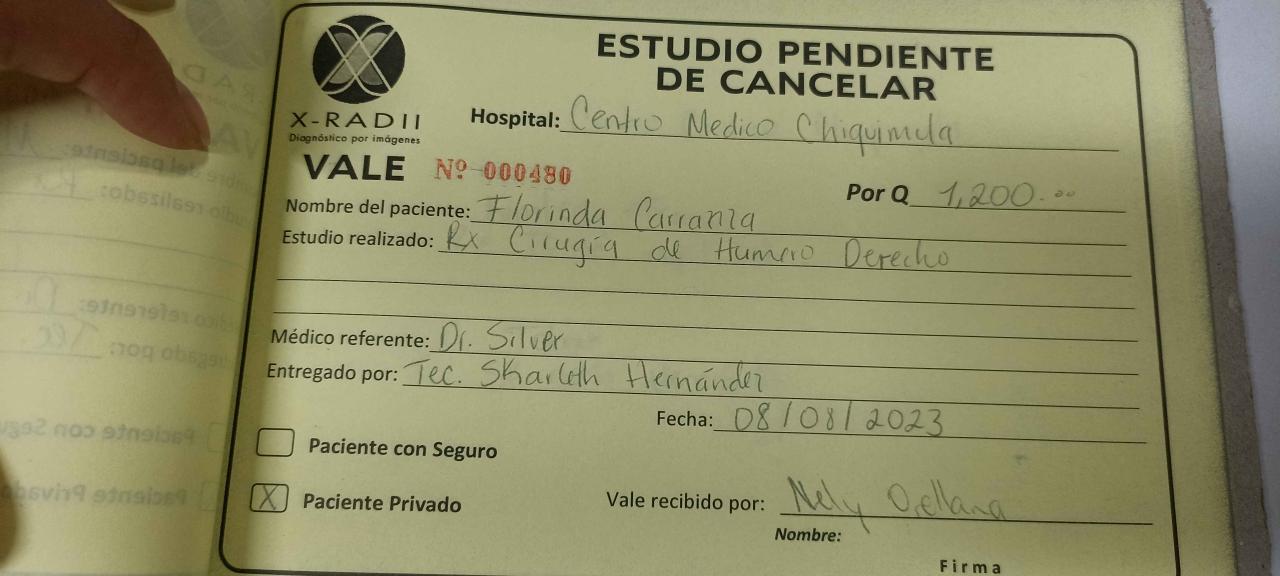 ESTUDIO PENDIENTE
DE CANCELAR
X-RADII
Diagnóstico por imágenes
Hospital: Centro Medico Chiquimula
VALE Nº 000480
Por Q 1,200.00
Nombre del paciente: Florinda Carranza
Estudio realizado: Rx Cirugía de Humero Derecho
Médico referente: Dr. Silver
Entregado por: Tec. Skarleth Hernández
Fecha: 08/08/2023
Paciente con Seguro
X Paciente Privado
Vale recibido por: Nely Orellana
Nombre:
Firma